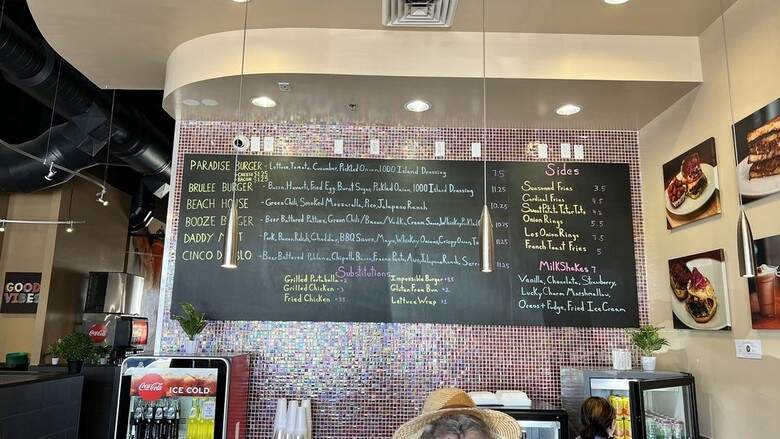 PARADISE BURGER - Lettuce, Tomato, Cucumber, Pickled Onion, 1000 Island Dressing 7.5
Cheese $1.25
Bacon $2.25
BRULEE BURGER - Bacon, Havarti, Fried Egg, Burnt Sugar, Pickled Onion, 1000 Island Dressing 11.25
BEACH HOUSE - Green Chili, Smoked Mozzarella, Pico, Jalapeno Ranch
BOOZE BURGER - Beer Battered Patties, Green Chili/Bacon/Vodka Cream Sauce, Whiskey
DADDY - Pork, Bacon, Ranch, Cheddar, BBQ Sauce, Mayo, Whiskey Onions, Crispy Onion 11.25
CINCO - Beer Battered Patties, Chipotle Bacon 10.25
Substitutions
Grilled Portabella
Grilled Chicken
Fried Chicken
Impossible Burger
Gluten Free Bun
Lettuce Wrap
Sides
Seasoned Fries 3.5
Cardinal Fries
Sweet Potato Tater Tots
Onion Rings
Los Onion Rings 7.5
French Toast Fries 5
MilkShakes 7
Vanilla, Chocolate, Strawberry,
Lucky Charm Marshmallow,
Oreos + Fudge, Fried Ice Cream
GOOD
VIBES
Coca-Cola
Coca-Cola
ICE COLD